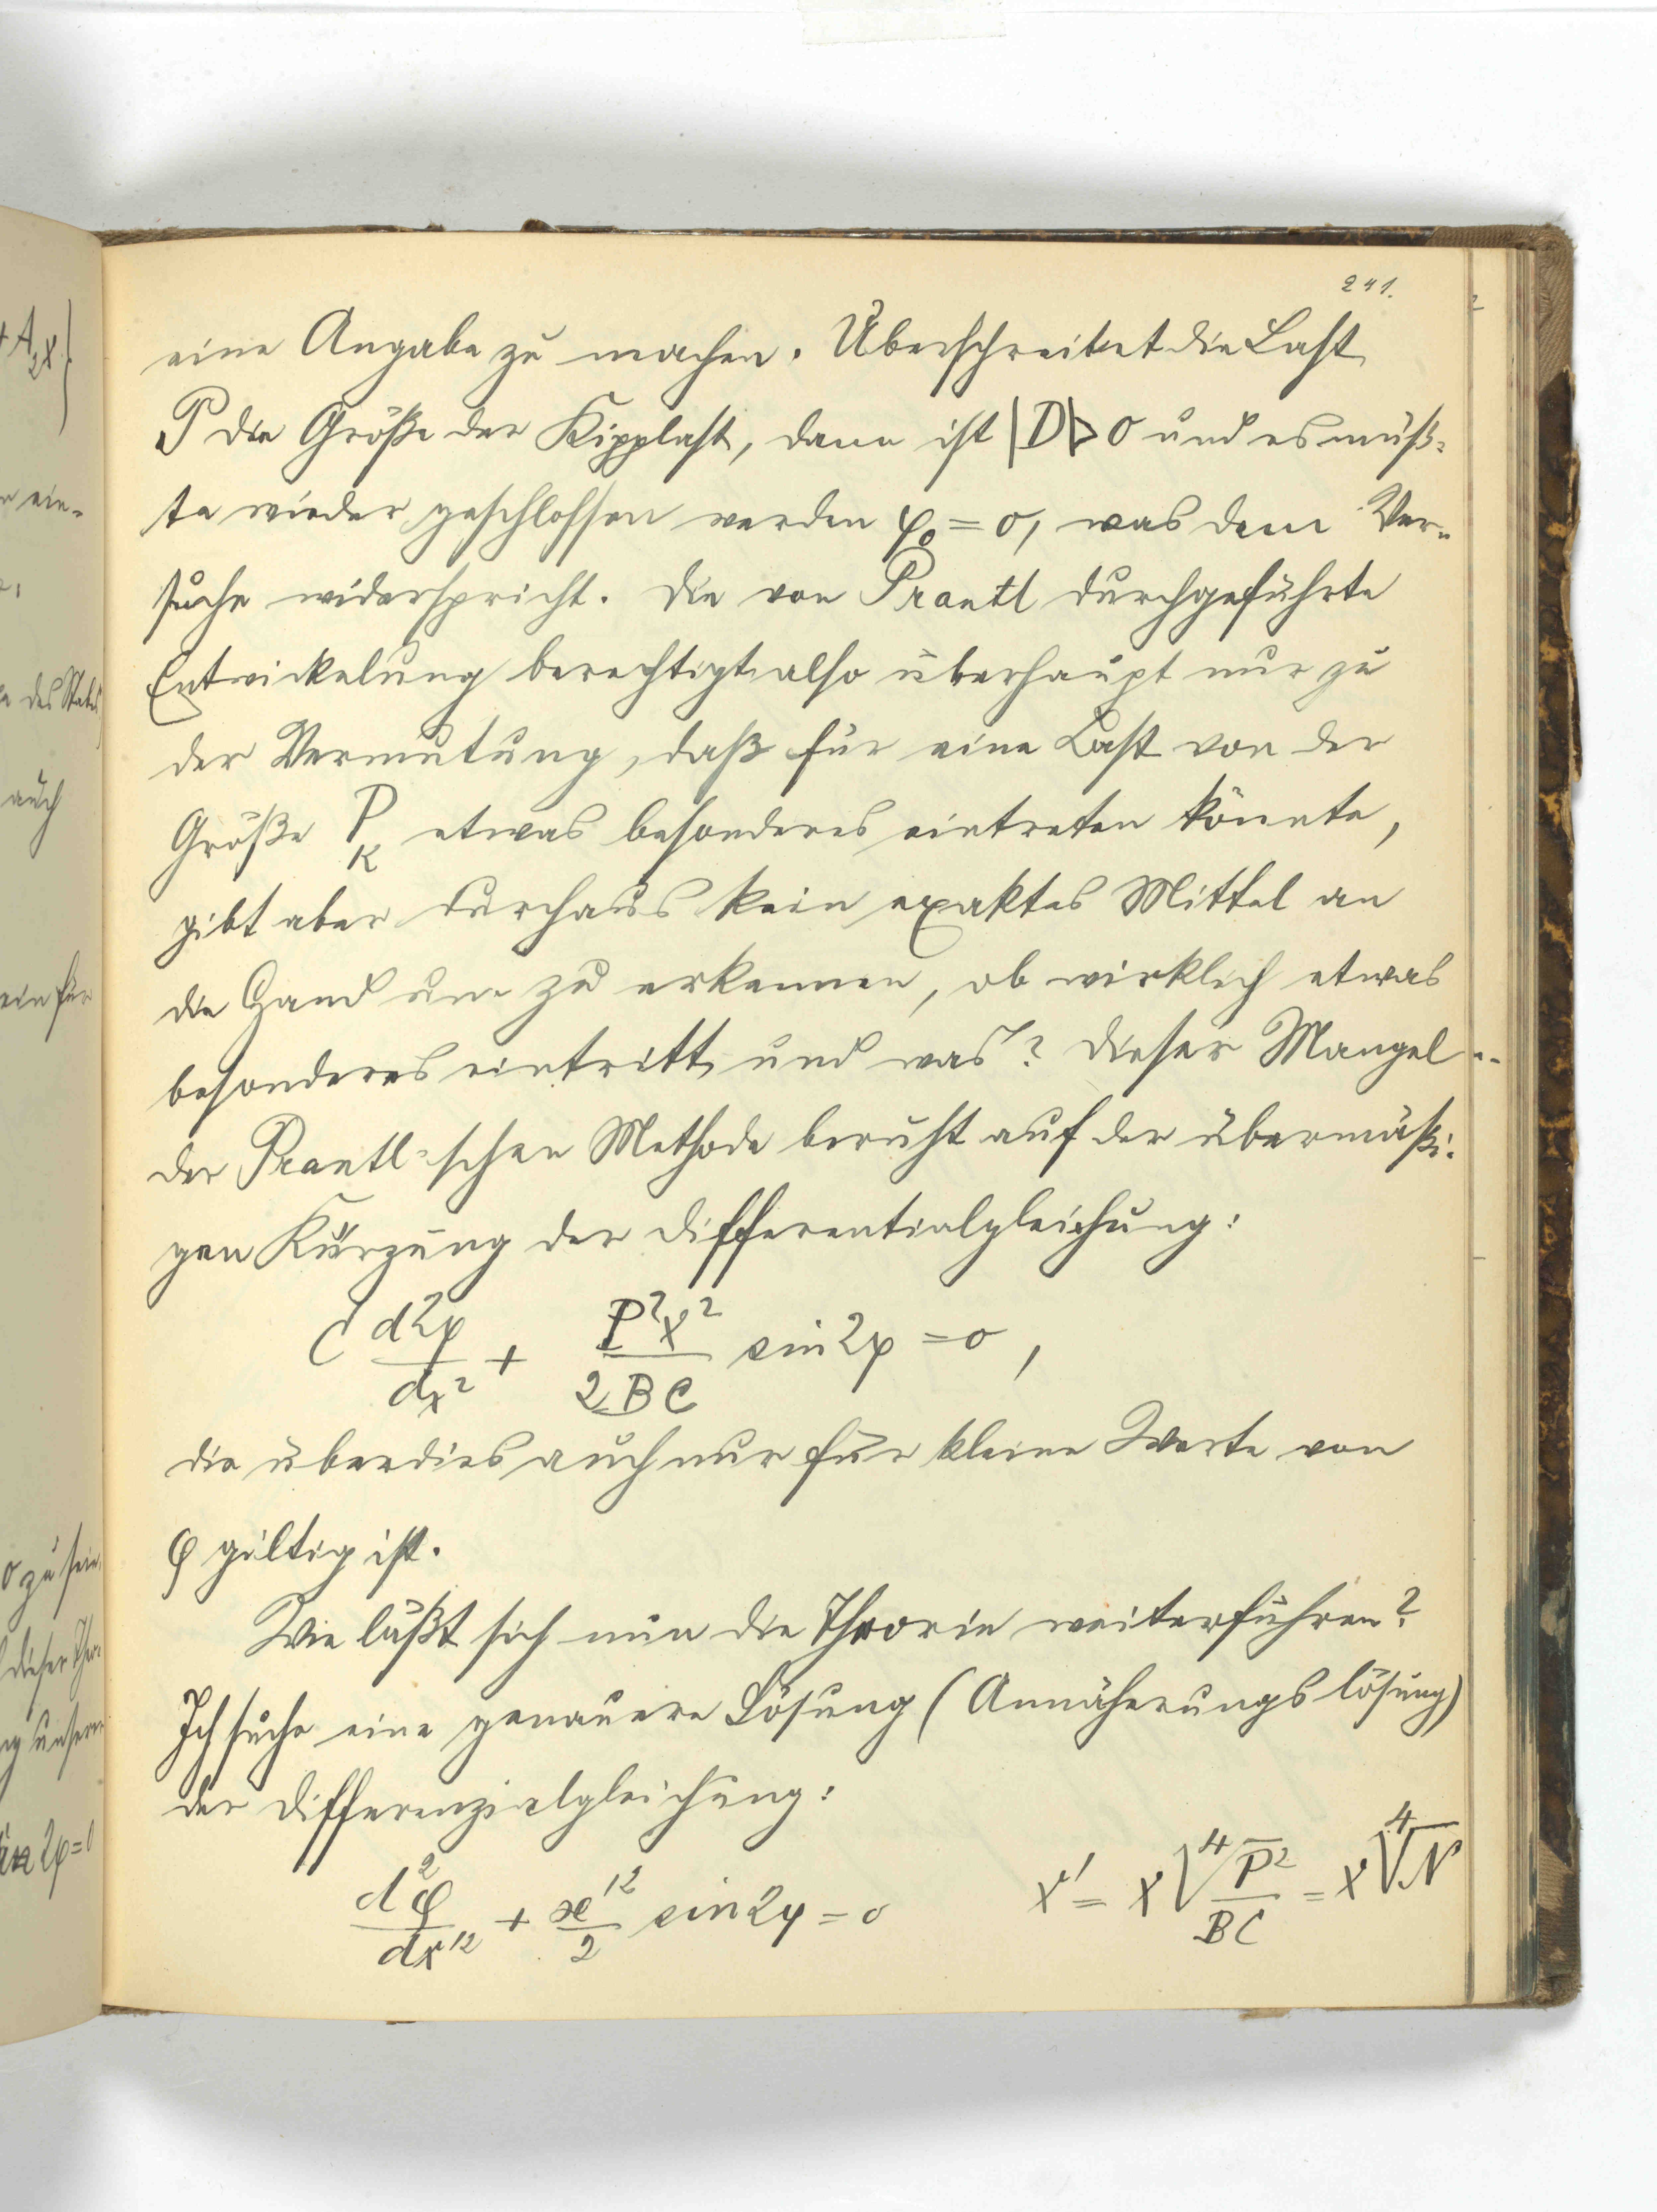 241.
eine Angabe zu machen. Überschreitet die Last
P die Größe der Kipplast, dann ist |D|>0 und es müß-
te wieder geschlossen werden φ₀=0, was dem Ver-
suche widerspricht. Die von Prantl durchgeführte
Entwickelung berechtigt also überhaupt nur zu
der Vermutung, daß für eine Last von der
Größe P_K etwas besonderes eintreten könnte,
gibt aber durchaus kein exaktes Mittel an
die Hand um zu erkennen, ob wirklich etwas
besonderes eintritt und was? Dieser Mangel
der Prantl-schen Methode beruht auf der übermäßi-
gen Kürzung der Differentialgleichung:
C d²φ/dx² + P²x²/2BC sin2φ = 0,
die überdies auch nur für kleine Werte von
φ gültig ist.
Wie läßt sich nun die Theorie weiterführen?
Ich suche eine genauere Lösung (Annäherungslösung)
der Differenzialgleichung:
d²φ/dx'² + x'²/2 sin2φ = 0 x' = x ∜P²/BC = x ∜N
+A₂x}
ein-
des Stabes
auch
ein für
0 zu sein
dieser
unserer
sin 2φ=0